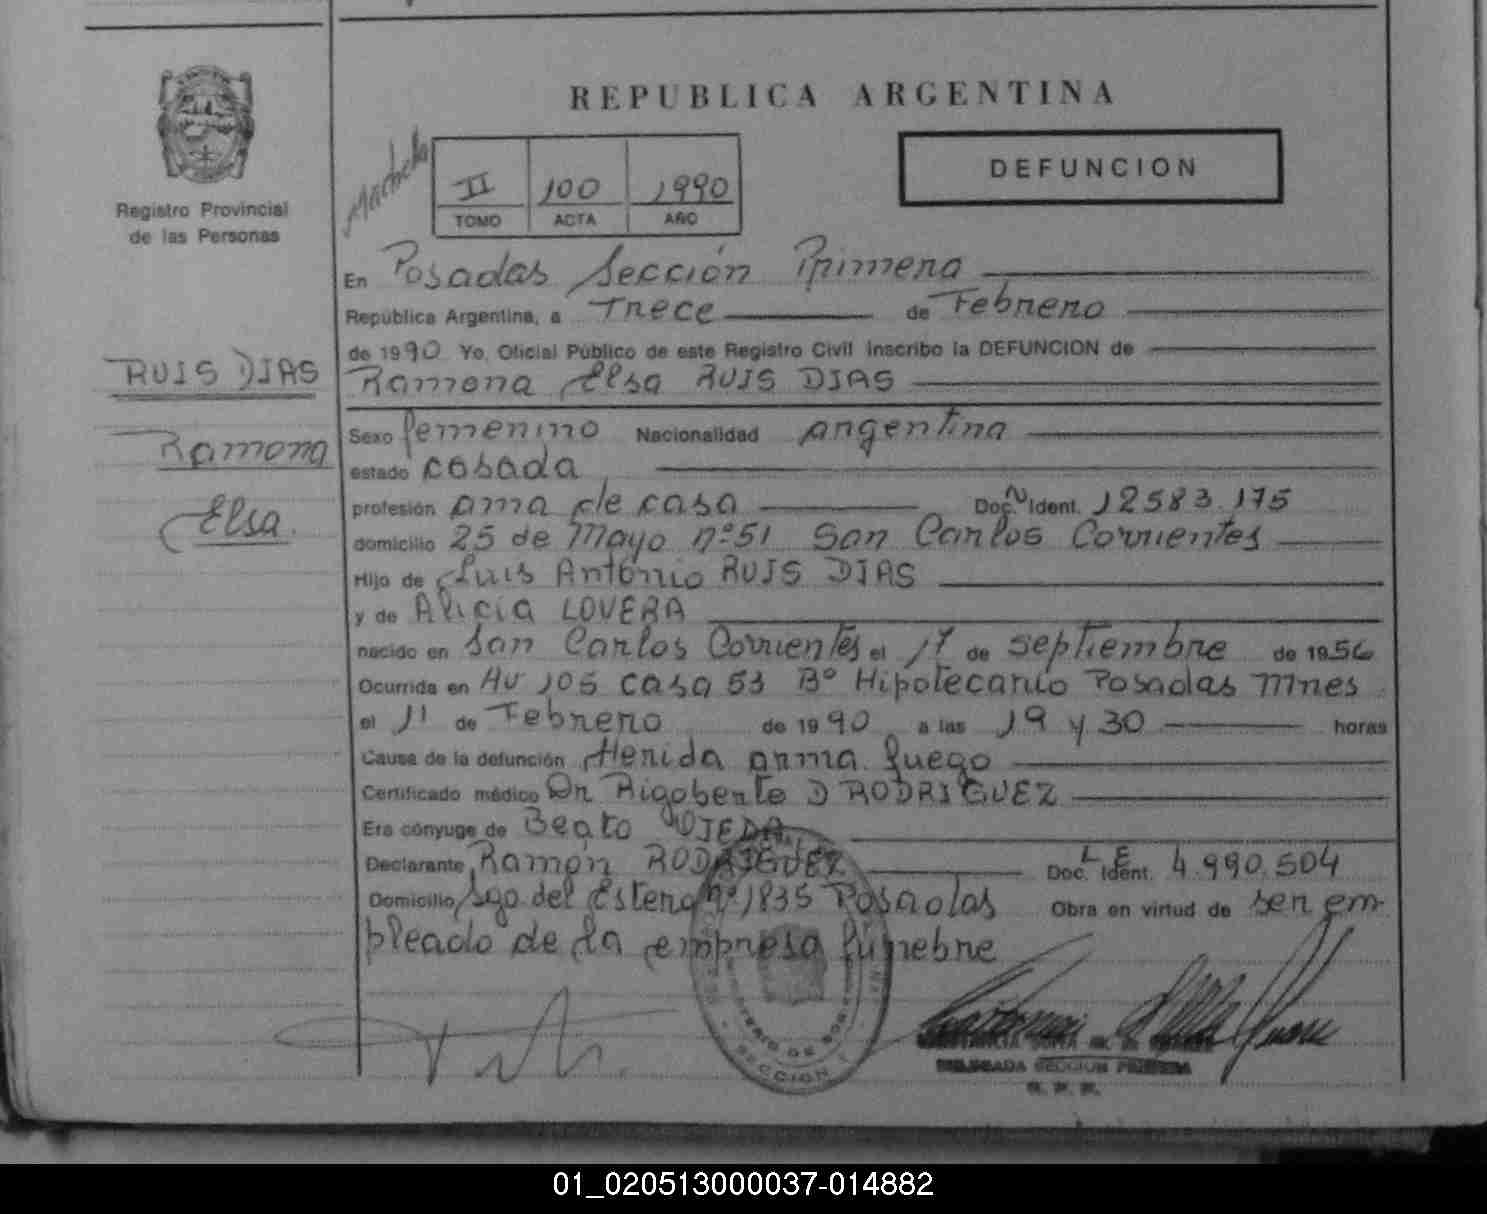 REPUBLICA ARGENTINA
DEFUNCION
II 100 1990
TOMO ACTA AÑO
Registro Provincial
de las Personas
RUIS DIAS
Ramona
Elsa.
En Posadas Sección Primera
República Argentina, a Trece de Febrero
de 1990 Yo, Oficial Público de este Registro Civil inscribo la DEFUNCION de
Ramona Elsa RUIS DIAS
Sexo femenino Nacionalidad argentina
estado casada
profesión ama de casa Doc. N Ident. 12583.175
domicilio 25 de Mayo nº 51 San Carlos Corrientes
Hijo de Luis Antonio RUIS DIAS
y de Alicia LOVERA
nacido en San Carlos Corrientes el 17 de septiembre de 1956
Ocurrida en Av 105 casa 53 Bº Hipotecario Posadas Mnes
el 11 de Febrero de 1990 a las 19 y 30 horas
Causa de la defunción Herida arma fuego
Certificado médico Dr Rigoberto D RODRIGUEZ
Era cónyuge de Beato OJEDA
Declarante Ramón RODRIGUEZ Doc. L E Ident. 4.990.504
Domicilio Sgo del Estero nº 1835 Posadas Obra en virtud de ser em-
pleado de la empresa fúnebre
DELEGADA SECCION PRIMERA
R. P. P.
SECCION 1
01_020513000037-014882